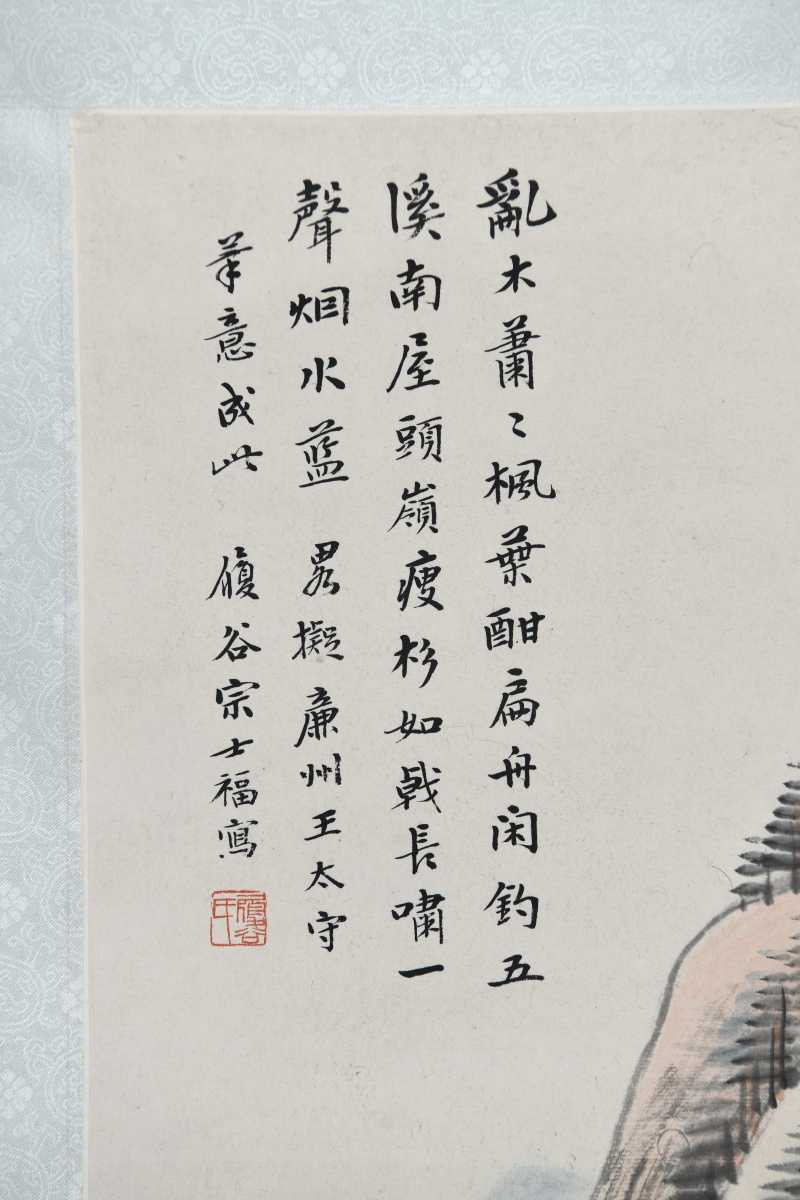 亂木蕭〻楓葉酣扁舟闲釣五
溪南屋頭嶺瘦杉如戟長嘯一
聲烟水藍 畧擬廉州王太守
筆意成此 履谷宗士福寫